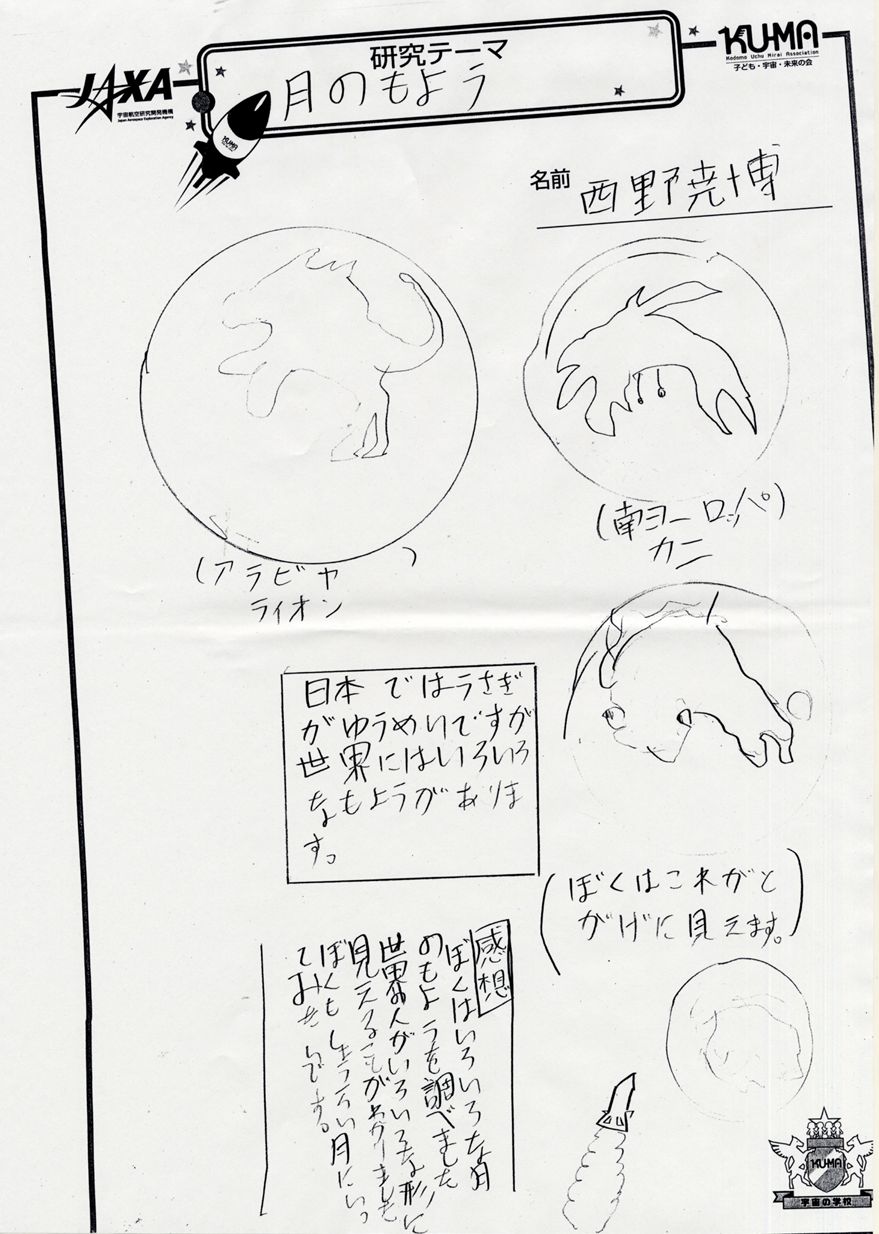 研究テーマ
月のもよう
JAXA
宇宙航空研究開発機構
Japan Aerospace Exploration Agency
KU-MA
Kodomo Uchu Mirai Association
子ども・宇宙・未来の会
KUMA
名前 西野堯博
(アラビヤ)
ライオン
(南ヨーロッパ)
カニ
日本ではうさぎ
がゆうめいですが
世界にはいろいろ
なもようがありま
す。
(ぼくはこれがと
がげに見えます。)
感想
ぼくはいろいろな月
のもようを調べました
世界の人がいろいろな形に
見えることがわかりました
ぼくもしょうらい月にいっ
てみたいです。
KUMA
宇宙の学校